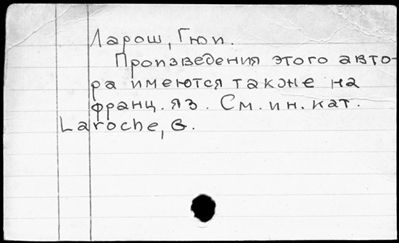 Ларош, Гюи.
Произведения этого авто-
ра имеются также на
франц. яз. См. ин. кат.
Laroche, G.